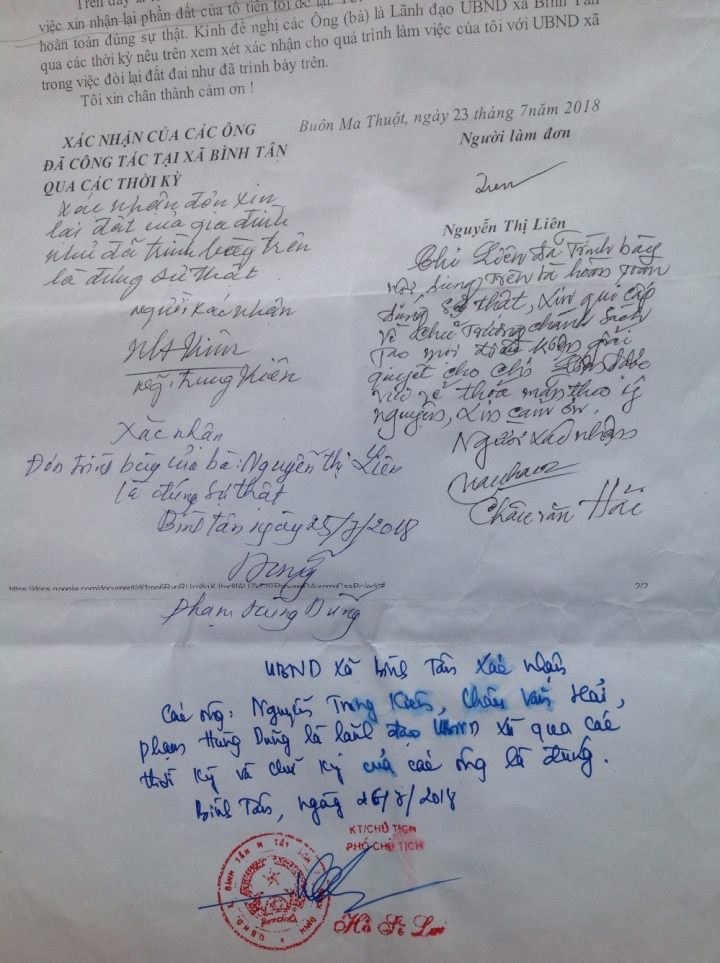 Trên đây là
việc xin nhận lại phần đất của tổ tiên tôi để lại. Tôi
hoàn toàn đúng sự thật. Kính đề nghị các Ông (bà) là Lãnh đạo UBND xã Bình Tân
qua các thời kỳ nêu trên xem xét xác nhận cho quá trình làm việc của tôi với UBND xã
trong việc đòi lại đất đai như đã trình bày trên.
Tôi xin chân thành cảm ơn !
Buôn Ma Thuột, ngày 23 tháng 7năm 2018
XÁC NHẬN CỦA CÁC ÔNG
ĐÃ CÔNG TÁC TẠI XÃ BÌNH TÂN
QUA CÁC THỜI KỲ
Xác nhận đơn xin
lại đất của gia đình
như đã trình bày trên
là đúng sự thật.
Người xác nhận
Ng. Trung Kiên
Người làm đơn
Liên
Nguyễn Thị Liên
Chị Liên đã trình bày
nội dung trên là hoàn toàn
đúng sự thật, xin quí cấp
về chủ trương chánh sách
tạo mọi điều kiện giải
quyết cho chị được
vui vẻ thỏa mãn theo ý
nguyện, xin cảm ơn.
Người xác nhận
Châu văn Hải
Xác nhận
Đơn trình bày của bà: Nguyễn Thị Liên
là đúng sự thật
Bình Tân ngày 25/7/2018
Dũng
2/2
Phạm Hùng Dũng
UBND Xã Bình Tân Xác nhận
Các ông: Nguyễn Trung Kiên, Châu Văn Hải,
Phạm Hùng Dũng là lãnh đạo UBND xã qua các
thời kỳ và chữ ký của các ông là đúng.
Bình Tân, ngày 26/7/2018
KT/CHỦ TỊCH
PHÓ CHỦ TỊCH
U.B.N.D. X. BÌNH TÂN H. TÂY SƠN T. BÌNH ĐỊNH
Hồ Sĩ Lai